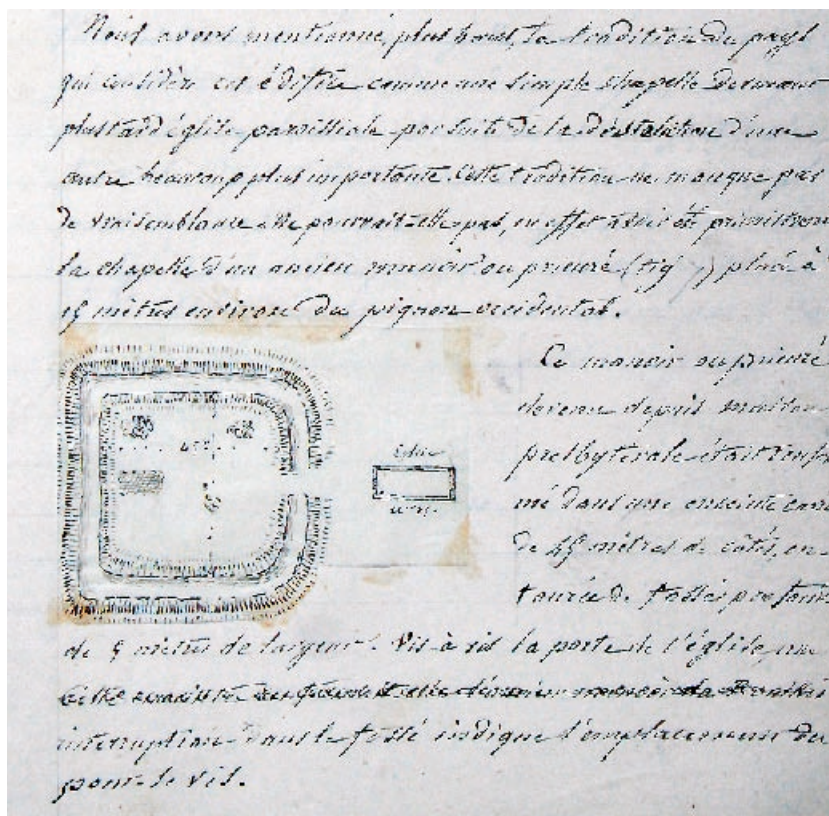 Nous avons mentionné, plus haut, la tradition du pays
qui considère cet édifice comme une simple chapelle devenant
plus tard église paroissiale par suite de la destruction d'une
autre beaucoup plus importante. Cette tradition ne manque pas
de vraisemblance elle pourrait-elle pas, en effet avoir été
la chapelle d'un ancien manoir ou prieuré (fig ) placé à
15 mètres environ du pignon occidental.
Ce manoir ou prieuré
devenu depuis maison
presbytérale était
mé dans une enceinte
de 45 mètres de côtés, en-
tourée de fossés
Eglise
45
de 5 mètres de largeur. Vis à vis la porte de l'église, une
interruption dans le fossé indique l'emplacement du
pont-le vis.